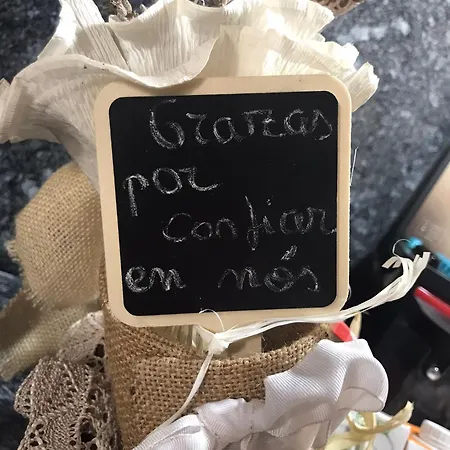 Grazas
por
confiar
en nós